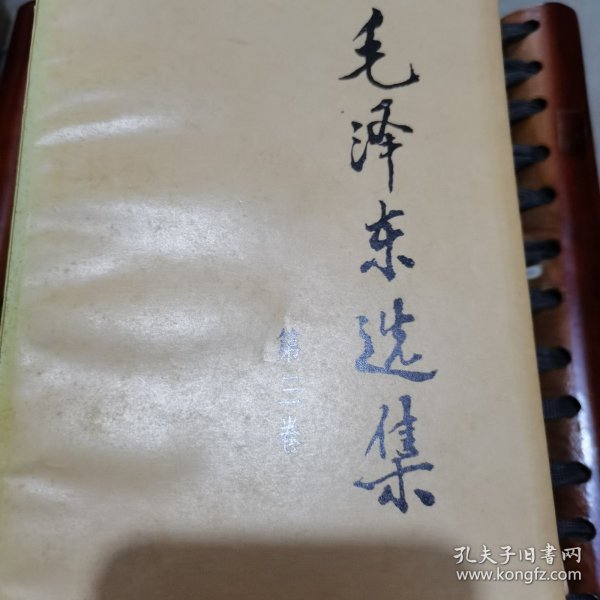 毛泽东选集
第二卷
孔夫子旧书网
www.kongfz.com